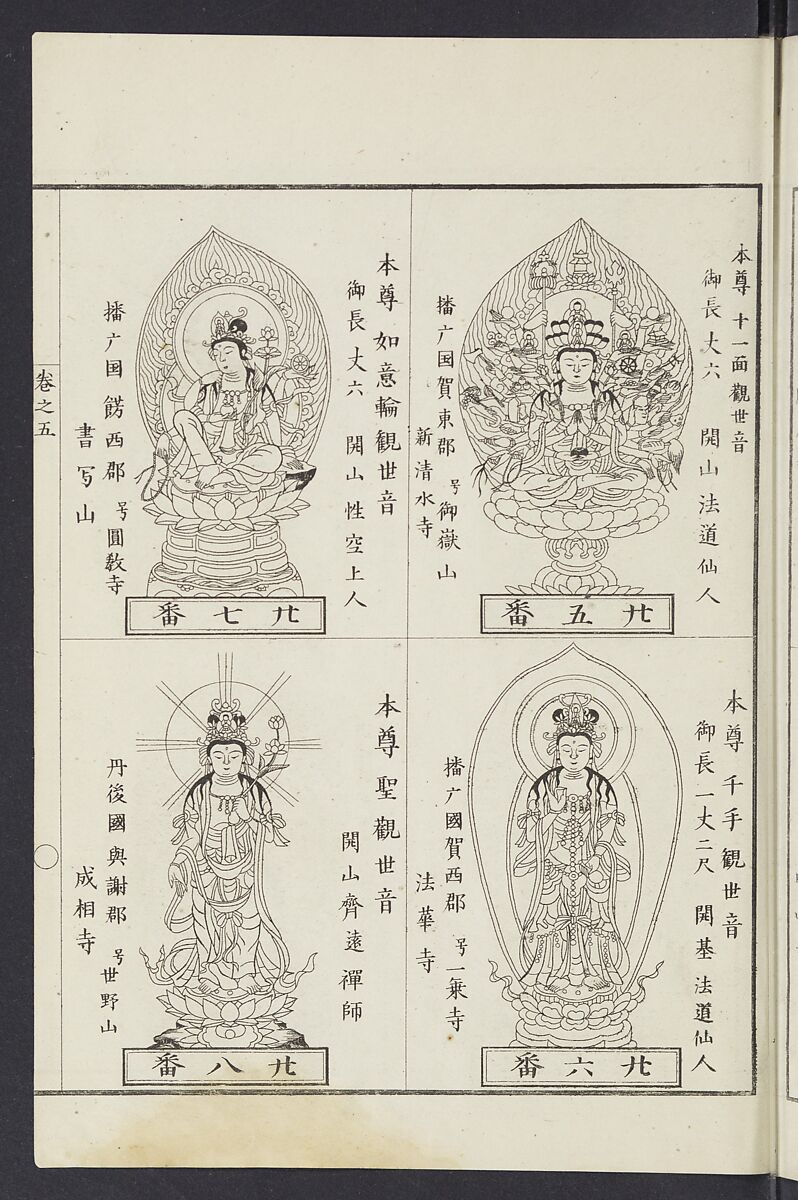 本尊十一面觀世音
御長丈六 開山法道仙人
播广国賀東郡 号御嶽山
新清水寺
廾五番
本尊千手觀世音
御長一丈二尺 開基法道仙人
播广國賀西郡 号一乗寺
法華寺
廾六番
本尊如意輪観世音
御長丈六 開山性空上人
播广国餝西郡 号圓教寺
書写山
廾七番
本尊聖觀世音
開山齊遠禪師
丹後國與謝郡 号世野山
成相寺
廾八番
卷之五